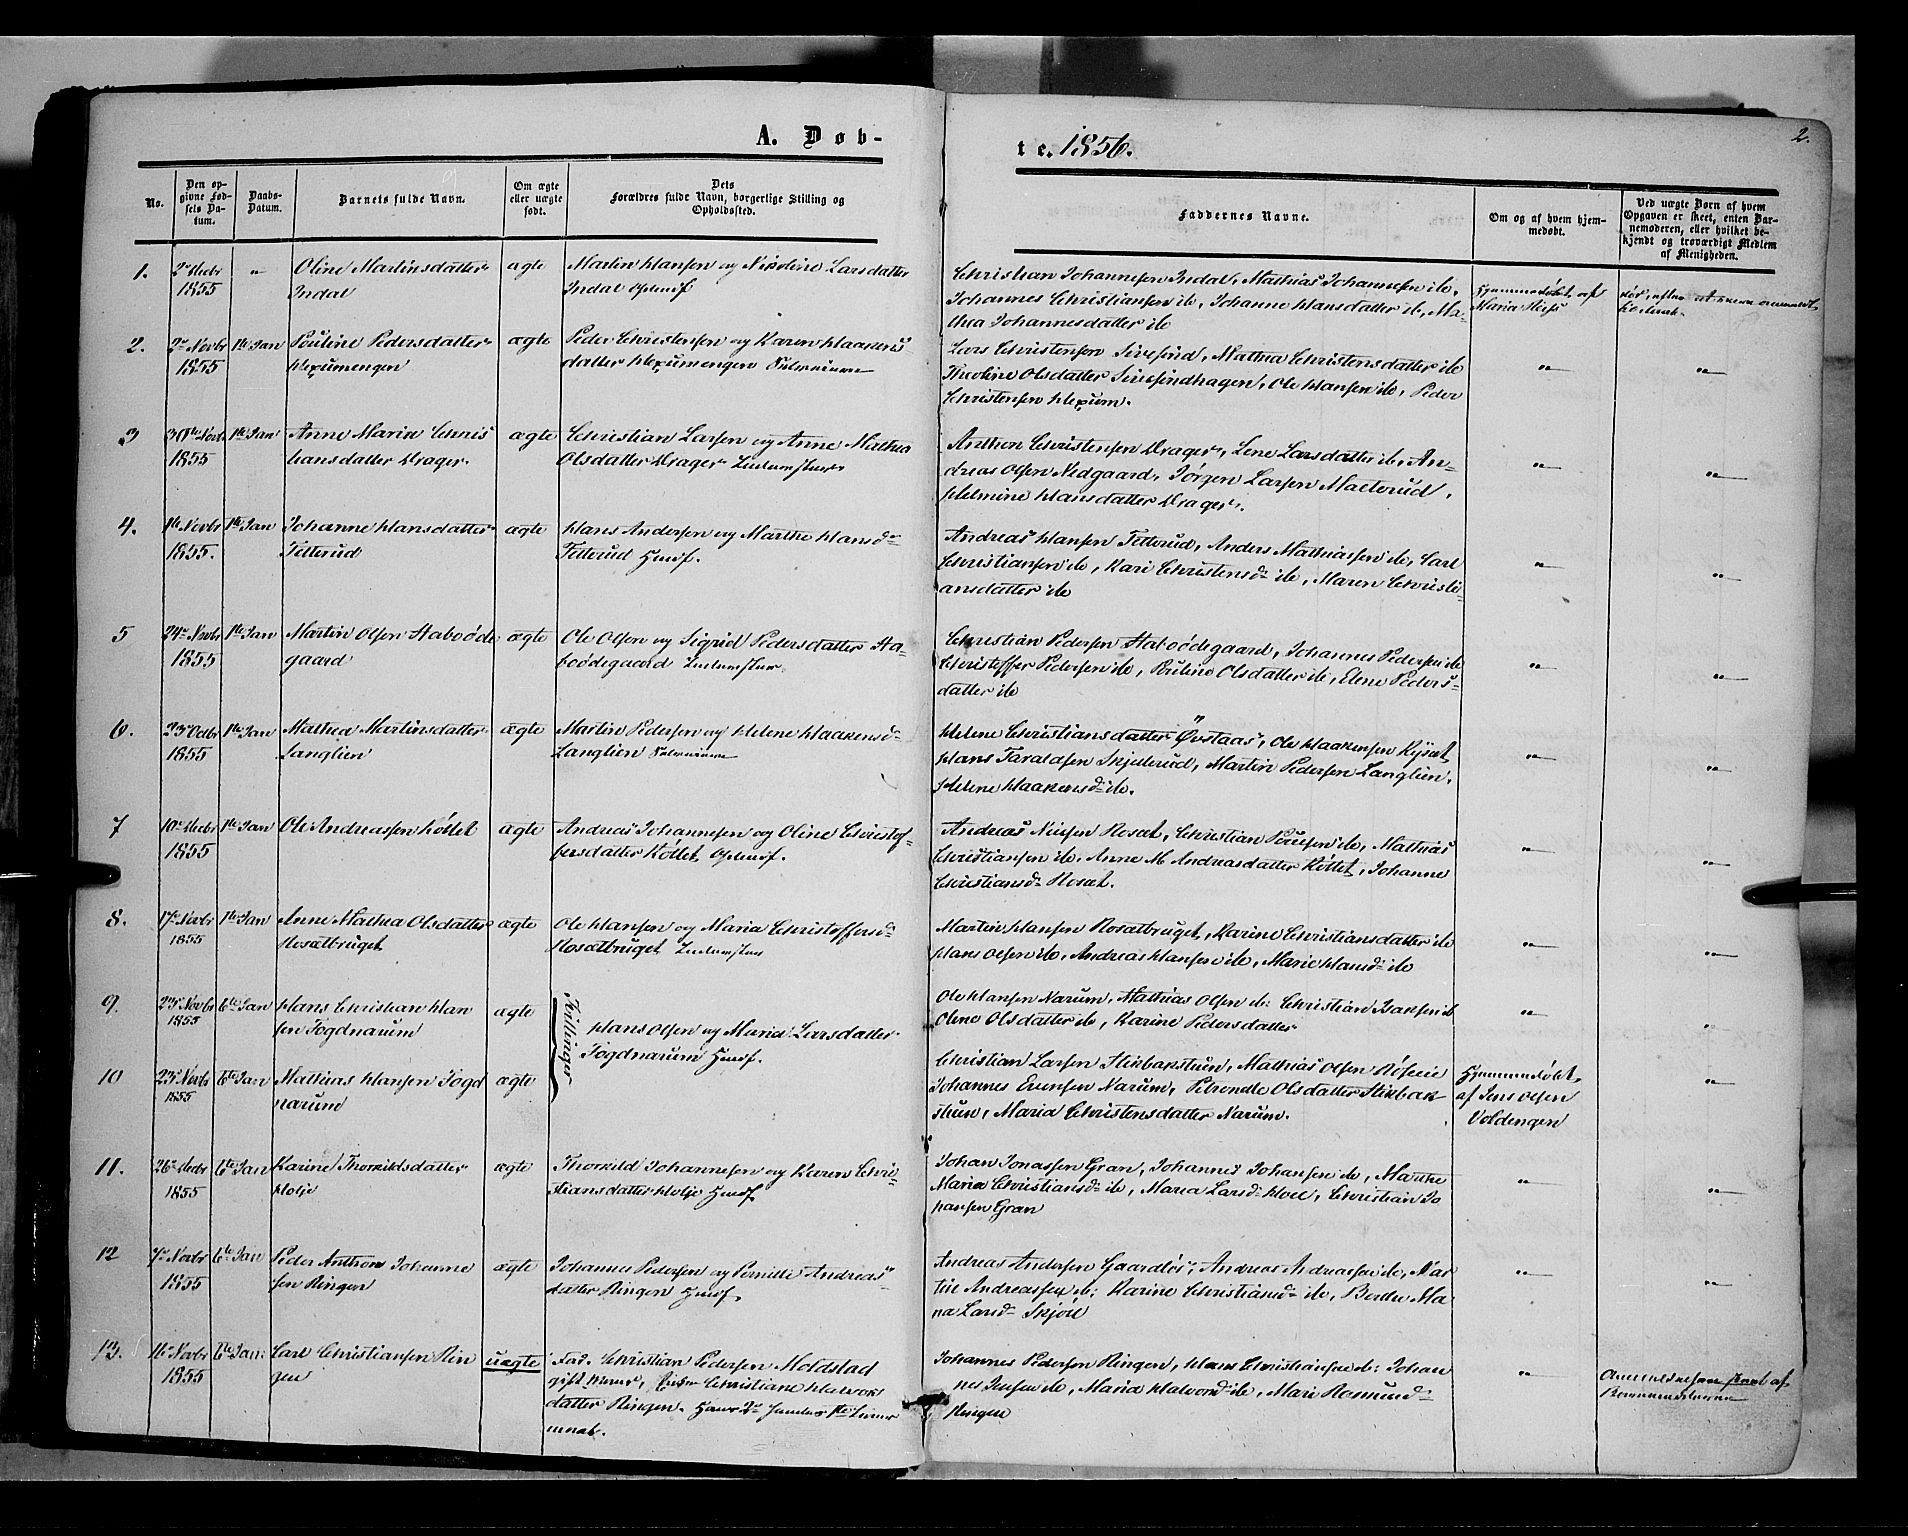 A. Døb-
te. 1856.
2.
No.
Den op-
givne Fød-
sels Da-
tum.
Daabs-
Datum.
Barnets fulde Navn.
Om ægte
eller uægte
født.
Dets
Forældres fulde Navn, borgerlige Stilling og
Opholdssted.
Faddernes Navne.
Om og af hvem hjem-
medøbt.
Ved uægte Børn af hvem
Opgaven er skeet, enten Bar-
nemoderen, eller hvilket be-
kjendt og troværdigt Medlem
af Menigheden.
1. 2den Decbr " Oline Martinsdatter ægte Martin Hansen og Nicoline Larsdatter
1855 Indal Indal
Christian Johannesen Indal, Mathias Johannesen ib.
Johannes Christiansen ib, Johanne Hansdatter ib, Ma-
thea Johannesdatter ib
Hjemmedøbt af
Maria
2. 2den Novbr 1ste Jan Pauline Pedersdatter ægte Peder Christensen og Karen Haakens
1855 Hexumengen datter Hexumengen
Lars Christensen Sivesind, Mathea Christensdatter ib
Theoline Olsdatter Sivesindhagen, Ole Hansen ib, Peder
Christensen Hexum.
" "
3 30te Novb 1ste Jan Anne Maria Chris ægte Christian Larsen og Anne Mathea
1855 tiansdatter Drager Olsdatter Drager
Anthon Christensen Drager, Lene Larsdatter ib, An-
dreas Olsen Nedgaard, Jørgen Larsen Mæterud,
Helmine Hansdatter Drager.
" "
4. 1ste Novbr 1ste Jan Johanne Hansdatter ægte Hans Andersen og Marthe Hansd-
1855. Fetterud Fetterud Huusf.
Andreas Hansen Fetterud, Anders Mathiassen ib, Carl
Christiansen ib, Kari Christensd- ib, Maren Christi-
ansdatter ib
" "
5 24de Novbr 1ste Jan Martin Olsen Staboøde ægte Ole Olsen og Sigrid Pedersdatter Sta-
1855 gaard boødegaard
Christian Pedersen Staboødegaard, Johannes Pedersen ib
Christoffer Pedersen ib, Pauline Olsdatter ib, Elene Peders-
datter ib
" "
6. 23de Octbr 1ste Jan Mathea Martinsdatter ægte Martin Pedersen og Helene Haakensd-
1855 Langlien Langlien
Helene Christiansdatter Øvstaas, Ole Haakensen
Hans Taraldsen Skjellerud, Martin Pedersen Langlien,
Helene Haakensd- ib.
" "
7 10de Decbr 1ste Jan Ole Andreassen Køllet ægte Andreas Johannesen og Oline Christof-
1855 fersdatter Køllet
Andreas Nielsen Rosæt, Christian Poulsen ib, Mathias
Christiansen ib, Anne M. Andreasdatter Køllet, Johanne
Christiansd- Rosæt.
" "
8. 17de Novbr 1ste Jan Anne Mathea Olsdatter ægte Ole Hansen og Maria Christoffersd-
1855 Rosætbruget Rosætbruget
Martin Hansen Rosætbruget, Karine Christiansdatter ib
Hans Olsen ib, Andreas Hansen ib, Marie Hansd- ib
" "
9. 23de Novbr 6te Jan Hans Christian Han ægte
1855 sen Sogdnarum
Tvillinger
Hans Olsen og Maria Larsdatter
Sogdnarum Huusf.
Ole Hansen Narum, Mathias Olsen ib: Christian Isaksen ib
Oline Olsdatter ib, Karine Pedersdatter
" "
10 23de Novbr 6te Jan Mathias Hansen Sogd ægte
1855 narum
Christian Larsen Stikbakstuen, Mathias Olsen
Johannes Evensen Narum, Petronelle Olsdatter Stikbak-
stuen, Maria Christensdatter Narum.
Hjemmedøbt
af Jens Olsen
Voldengen
"
11. 26de Decbr 6te Jan Karine Thorkildsdatter ægte Thorkild Johannesen og Karen Chri-
1855 Holje stiansdatter Holje Huusf
Johan Jonassen Gran, Johannes Johansen ib, Marthe
Maria Christiansd- ib, Maria Larsd- Hoel, Christian Jo
hansen Gran
" "
12 7de Novbr 6te Jan Peder Anthon Johanne ægte Johannes Pedersen og Pernille Andreas-
1855 sen Ringen datter Ringen Huusf.
Andreas Andersen Gaardløs, Andreas Andreassen ib, Mar
tin Andreassen ib: Karine Christiansd- ib, Berthe Ma
ria Larsd- Skjøll
" "
13. 16de Novbr 6te Jan: Carl Christiansen Rin uægte Fad. Christian Pedersen Moldstad
1855 gen gift Mand, Pigen Christiane Halvors
datter Ringen.
Johannes Pedersen Ringen, Hans Christiansen ib: Johan
nes Jensen ib, Maria Halvord- ib, Mari Rasmusd-
Ringen
"
Anmeldelsen skeet af
Barnemoderen